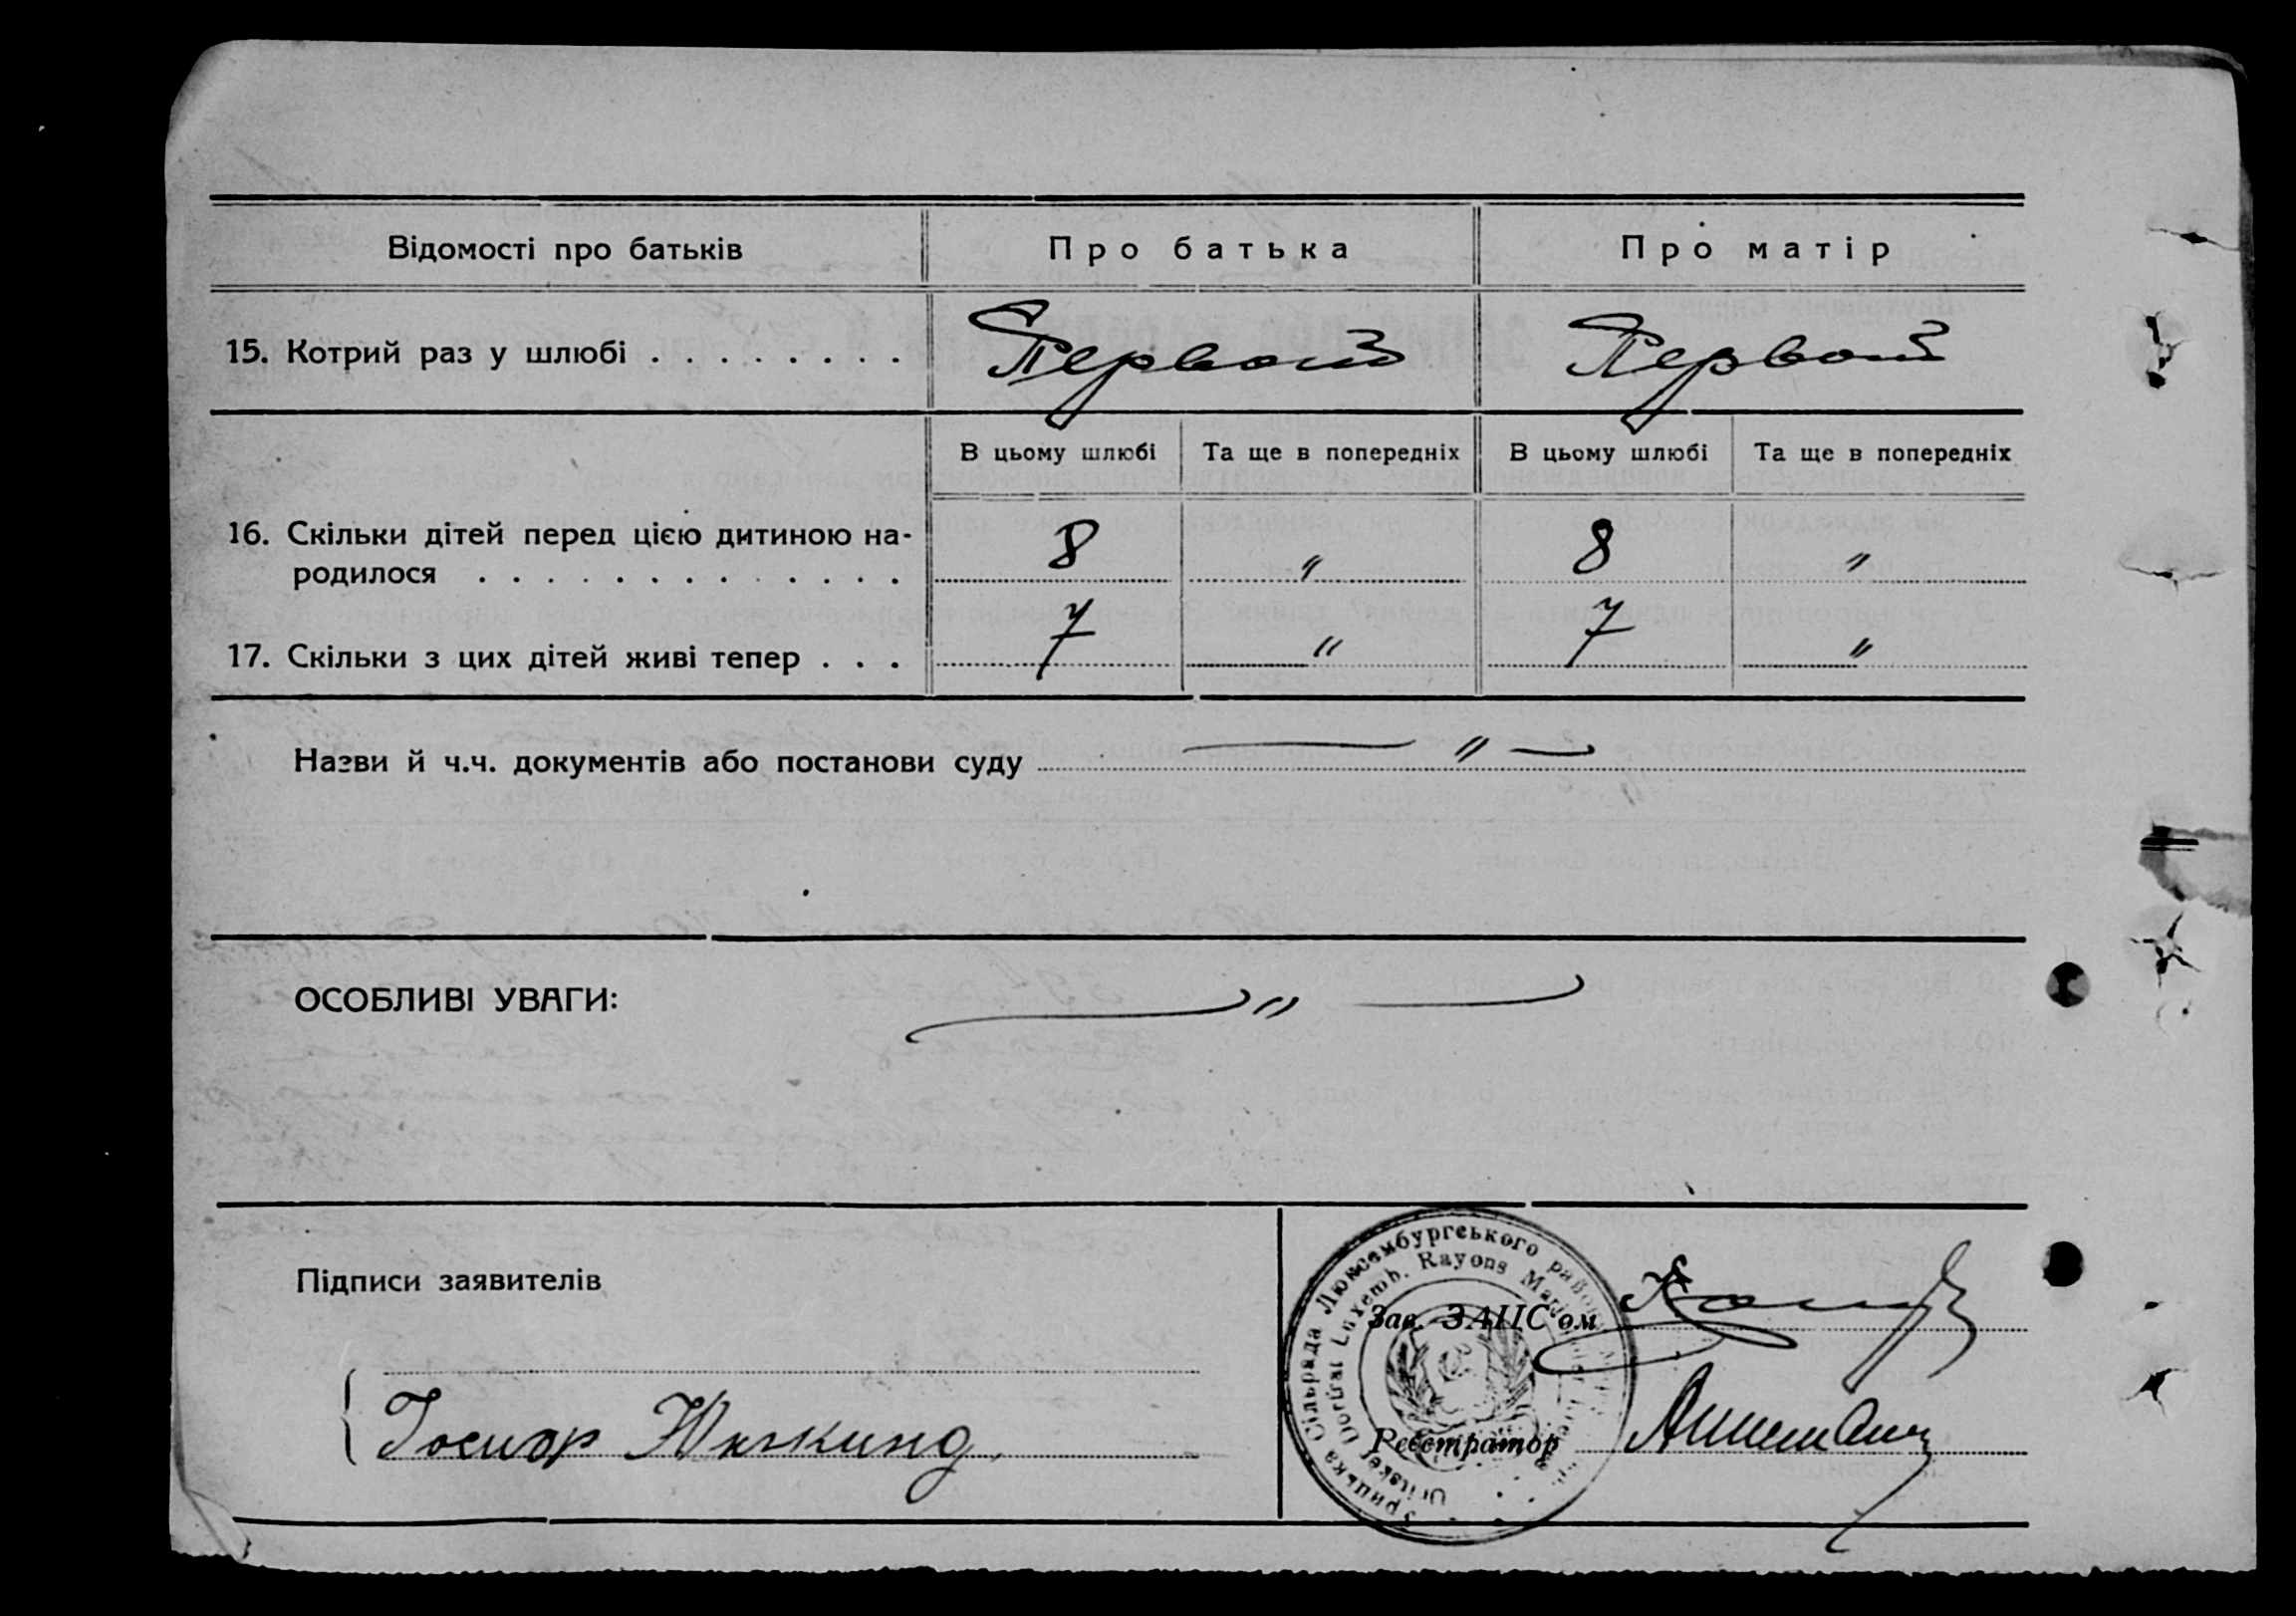 Відомості про батьків Про батька Про матір
15. Котрий раз у шлюбі . . . . . . . . Первой Первой
В цьому шлюбі Та ще в попередніх В цьому шлюбі Та ще в попередніх
16. Скільки дітей перед цією дитиною на-
родилося . . . . . . . . . . . . . 8 " 8 "
17. Скільки з цих дітей живі тепер . . . 7 " 7 "
Назви й ч.ч. документів або постанови суду — " —
ОСОБЛИВІ УВАГИ: — " —
Підписи заявителів
Зав. ЗАПС'ом
Реєстратор
Сільрада Люксембургського
Luxemb. Rayons